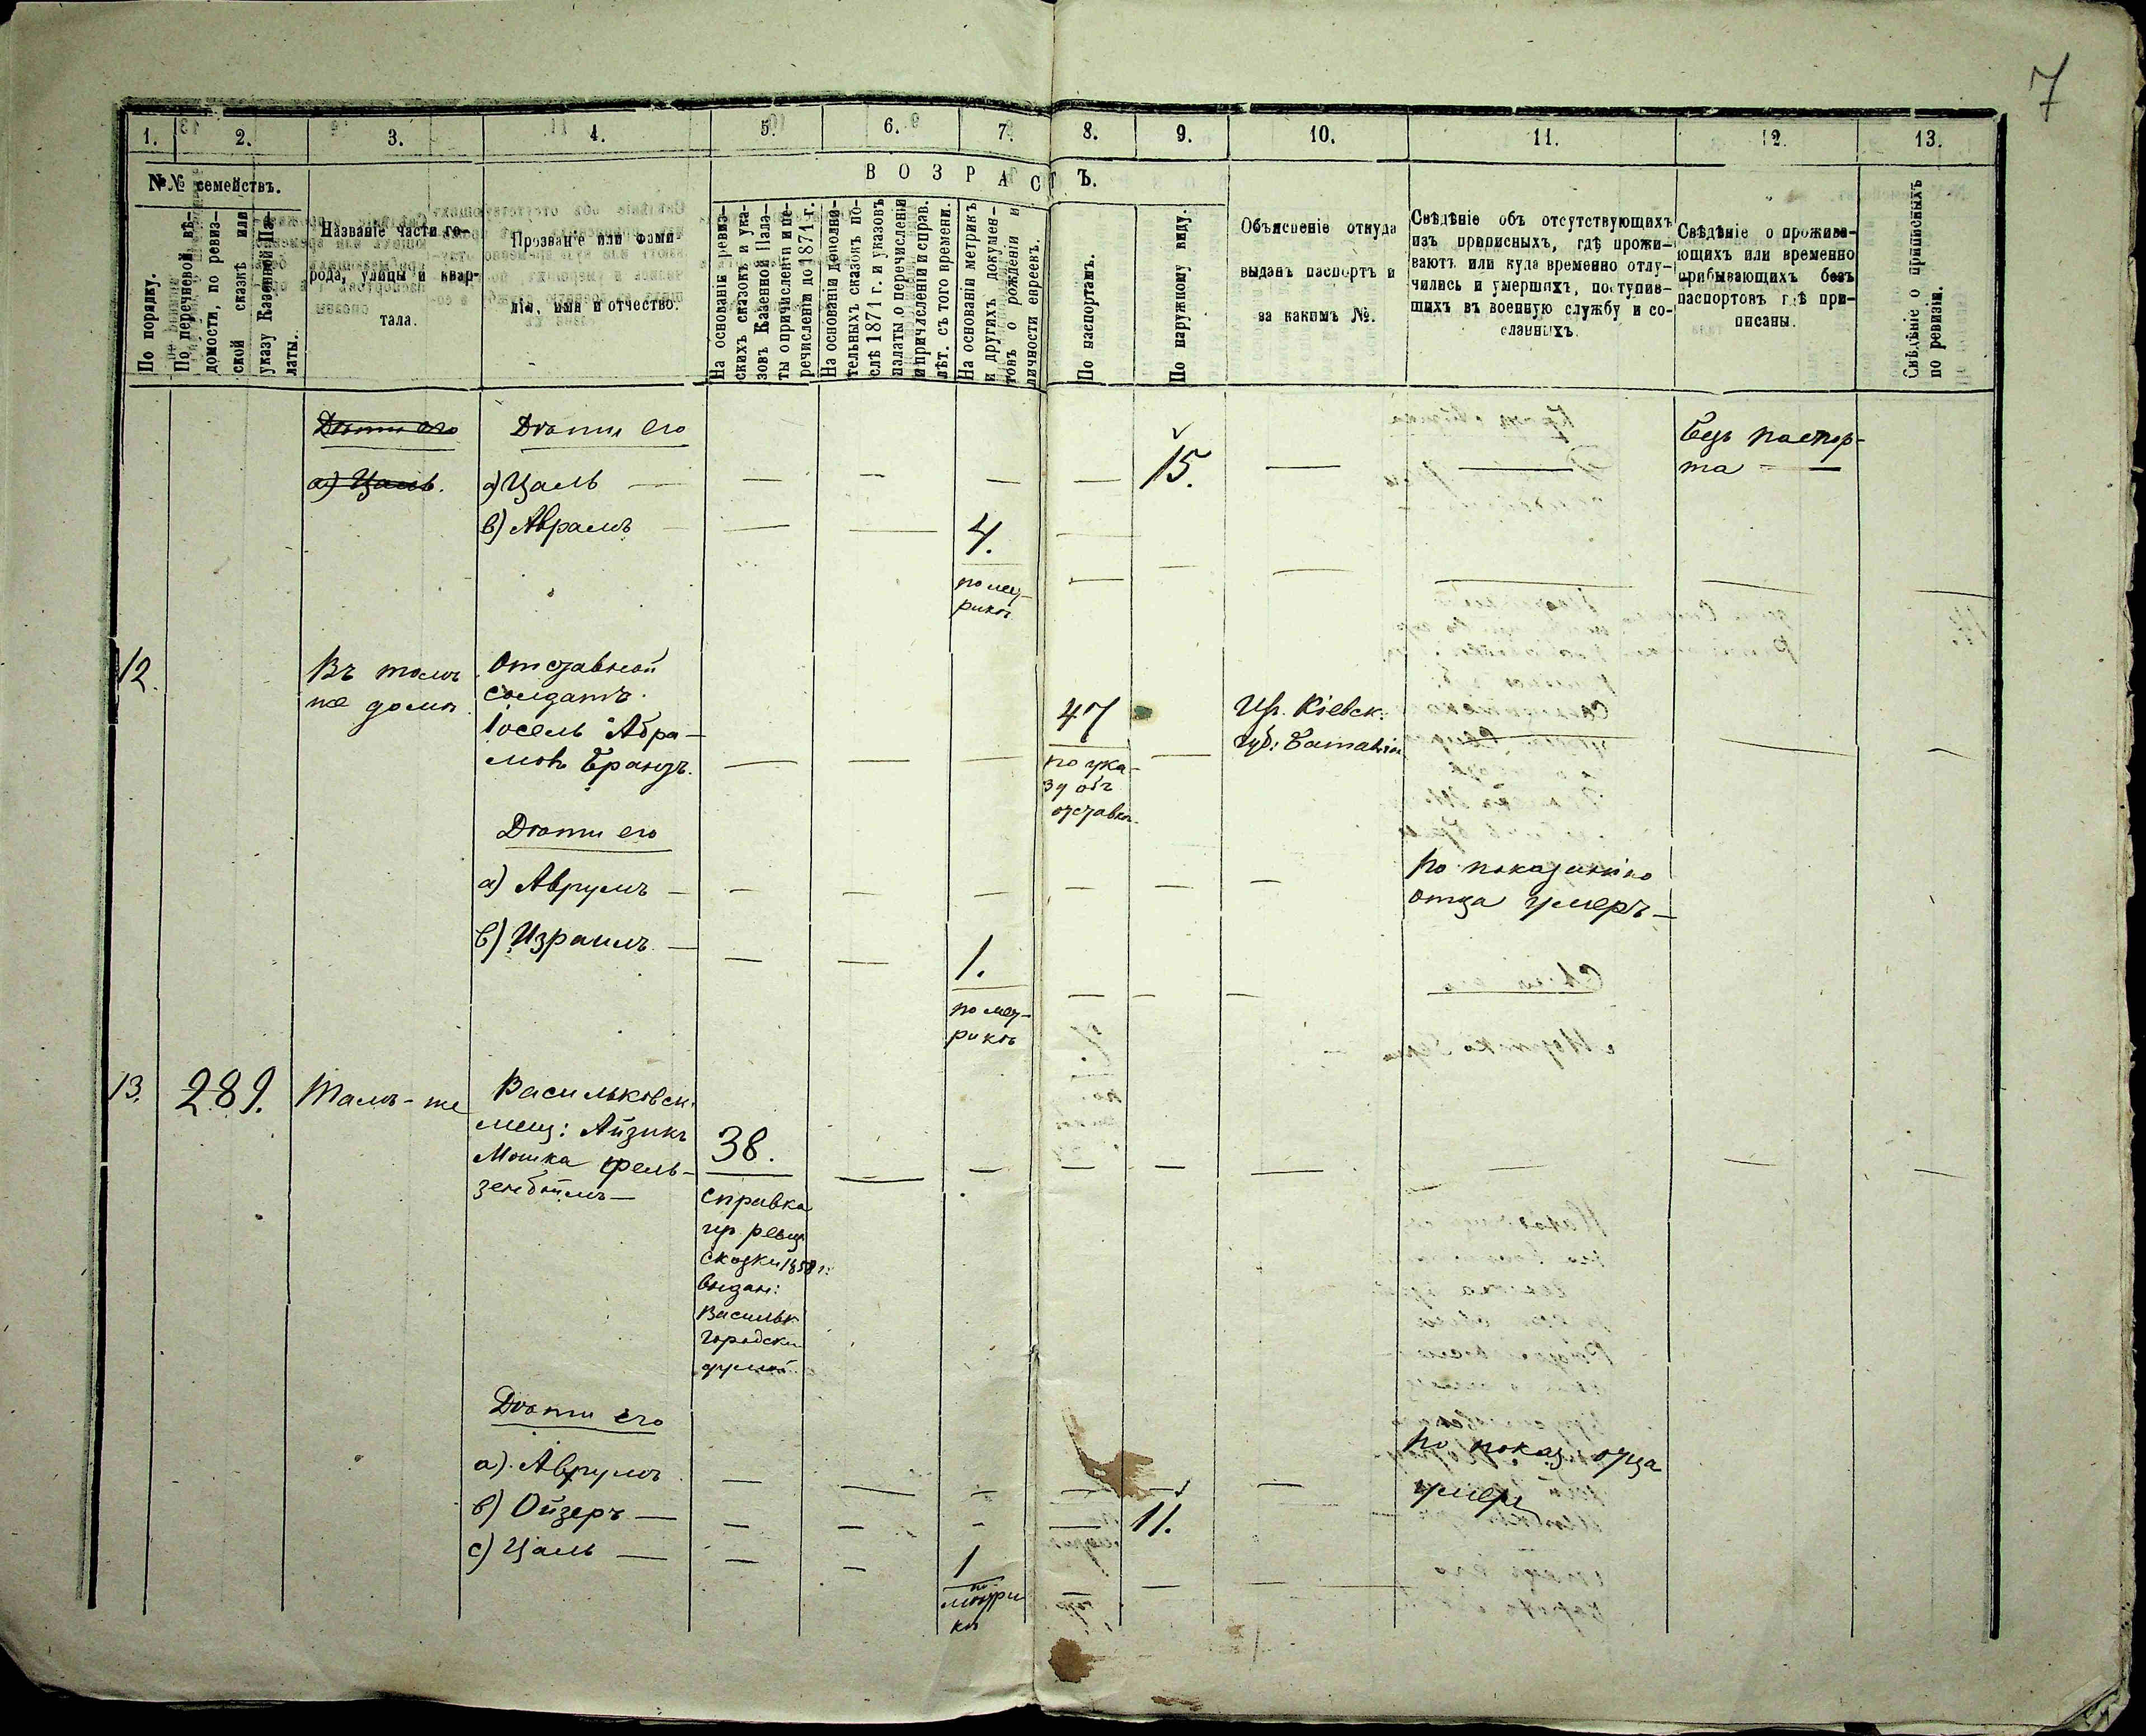 7
1. 2. 3. 4. 5. 6. 7. 8. 9. 10. 11. 12. 13.
№№ семействъ.
ВОЗРАСТЪ.
По порядку.
По перечневой вѣ-
домости, по ревиз-
ской сказкѣ или
указу Казенной Па-
латы.
Названіе части го-
рода, улицы и квар-
тала.
Прозваніе или фами-
лія, имя и отчество.
На основаніи ревиз-
скихъ сказокъ и ука-
зовъ Казенной Пала-
ты о причисленіи и пе-
речисленіи до 1871 г.
На основаніи дополни-
тельныхъ сказокъ по-
слѣ 1871 г. и указовъ
палаты о перечислени
и причисленіи и справ.
лѣт. съ того времени.
На основаніи метрикъ
и другихъ докумен-
товъ о рожденіи и
личности евреекъ.
По паспортамъ.
По наружному виду.
Объясненіе откуда
выданъ паспортъ и
за какимъ №.
Свѣдѣніе объ отсутствующихъ
изъ приписныхъ, гдѣ прожи-
ваютъ или куда временно отлу-
чились и умершихъ, поступив-
шихъ въ военную службу и со-
сланныхъ.
Свѣдѣніе о прожива-
ющихъ или временно
прибывающихъ безъ
паспортовъ гдѣ при-
писаны.
Свѣдѣніе о приписныхъ
по ревизіи.
Дѣти его
а) Цаль.
Дѣти его
а) Цаль —
в) Аврамъ
4.
по мет-
рикѣ
15.
Безъ паспор-
та —
12.
Въ томъ
же домѣ
Отставной
солдатъ
Іосель Абра-
мовъ Бранзъ.
47
по ука-
зу объ
отставкѣ
Кіевск:
губ:
Дѣти его
а) Аврумъ —
По показанію
отца умеръ —
в) Израиль —
1.
по мет-
рикѣ
13.
289.
Тамъ-же
Васильковск.
мещ: Айзикъ
Мошка Фель-
зенбаймъ —
38.
справка
изъ ревиз
сказки 1858 г:
выдан:
Васильк
городски
думой
Дѣти его
а). Аврумъ
по показ. отца
умеръ
в) Ойзеръ —
11.
с) Цаль —
1
по
метри
кѣ